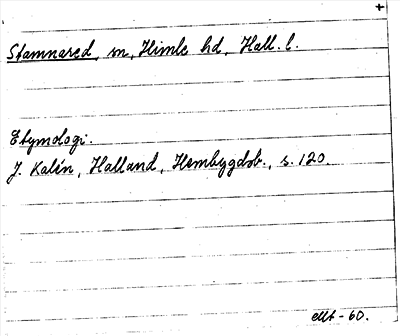 +
Stamnared, sn, Himle hd, Hall. l.
Etymologi.
J. Kalén, Halland, Hembygdsb., s. 120.
-60.